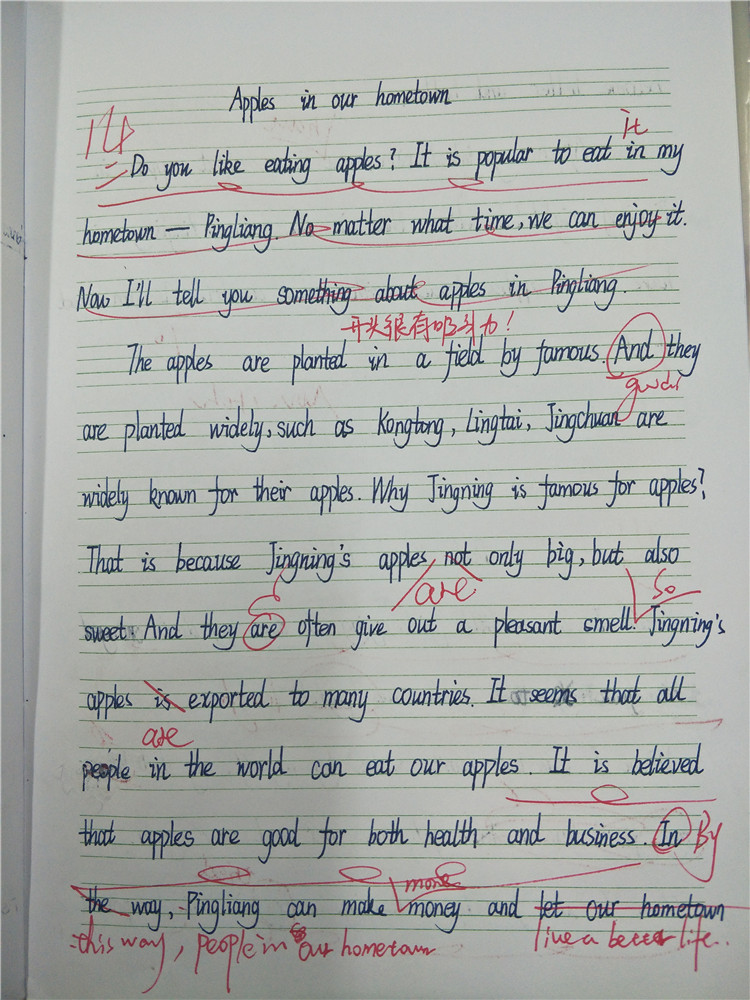 Apples in our hometown
14
it
Do you like eating apples? It is popular to eat in my
hometown — Pingliang. No matter what time, we can enjoy it.
Now I'll tell you something about apples in Pingliang.
开头很有吸引力!
The apples are planted in a field by famous. And they
are planted widely, such as Kongtong, Lingtai, Jingchuan are
widely known for their apples. Why Jingning is famous for apples?
That is because Jingning's apples not only big, but also
are
So
sweet. And they are often give out a pleasant smell. Jingning's
apples is exported to many countries. It seems that all
are
people in the world can eat our apples. It is believed
that apples are good for both health and business. In By
more
the way, Pingliang can make money and let our hometown
this way, people in our hometown live a better life.